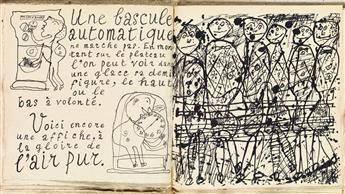 Une bascule
automatique
ne marche pas. En mon
tant sur le plateau
l'on peut voir dans
une glace sa demi
figure, le haut
ou le
bas à volonté.
Voici encore
une affiche, à
la gloire de
l'air pur.